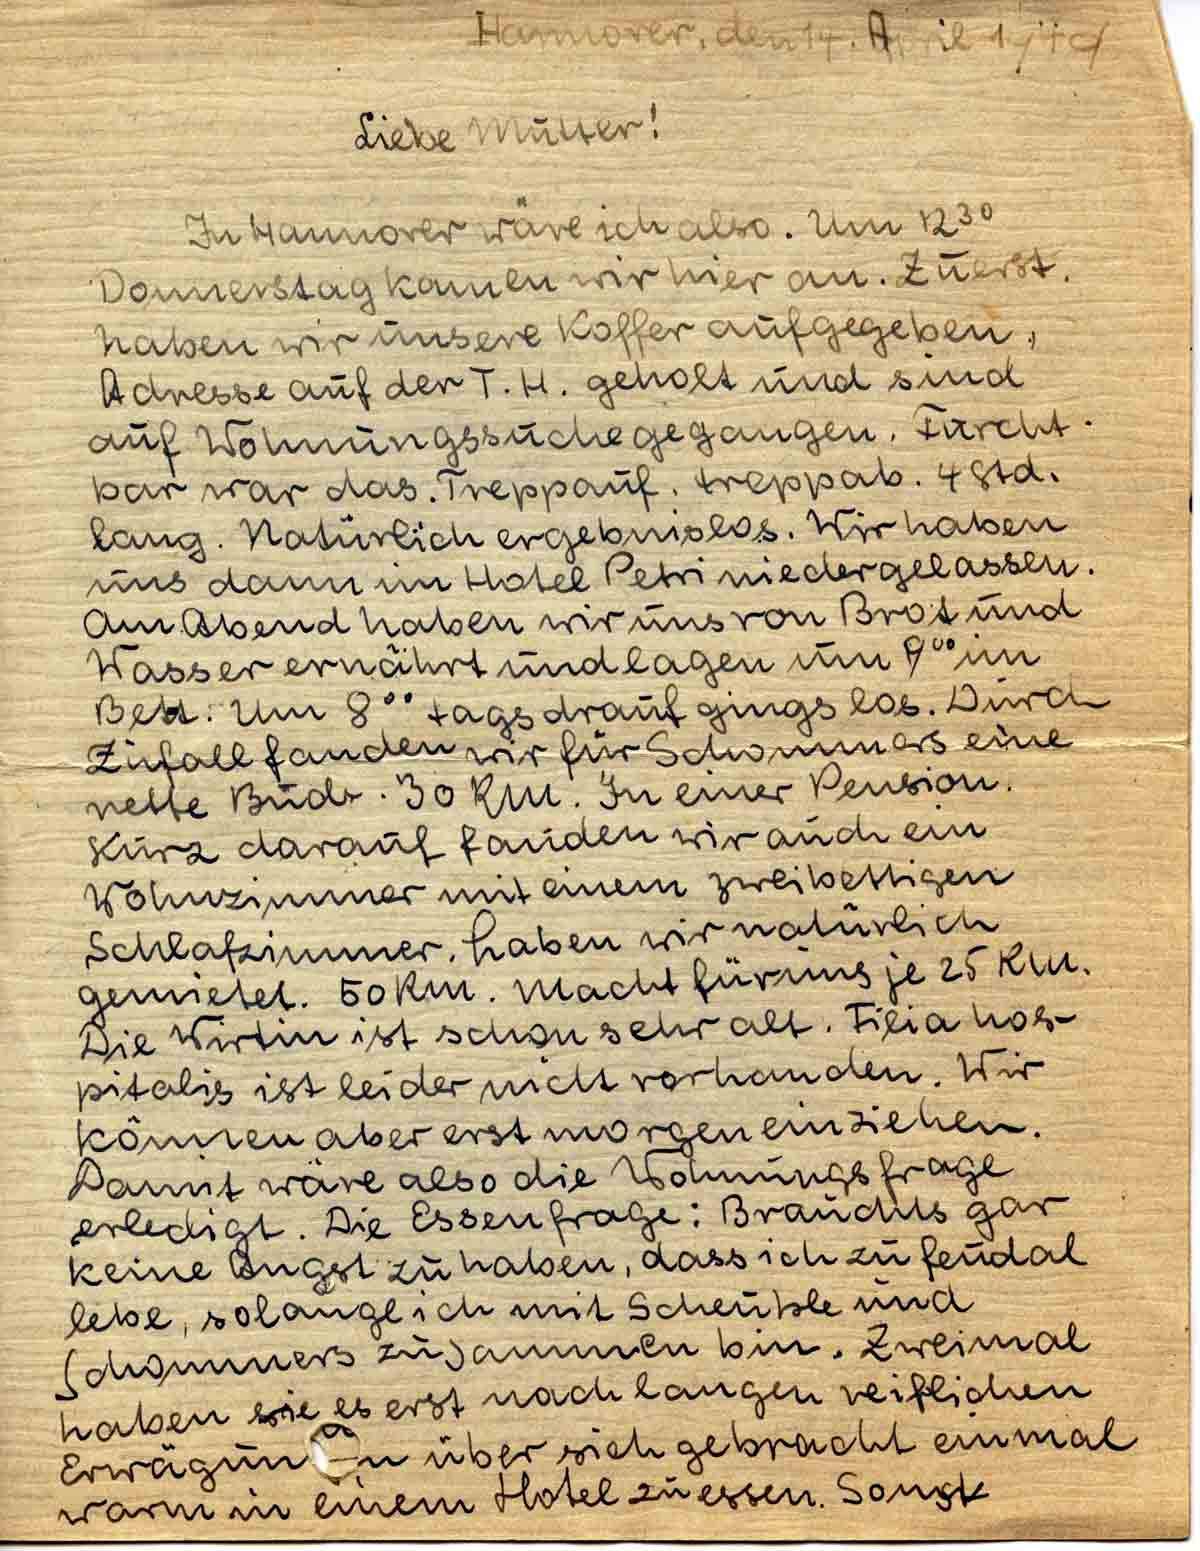 Hannover, den 14. April
Liebe Mutter!
In Hannover wäre ich also. Um 12 30
Donnerstag kamen wir hier an. Zuerst.
haben wir unsere Koffer aufgegeben,
Adresse auf der T. H. geholt und sind
auf Wohnungssuche gegangen. Furcht-
bar war das. Treppauf, treppab. 4 Std.
lang. Natürlich ergebnislos. Wir haben
uns dann im Hotel Petri niedergelassen.
Am Abend haben wir uns von Brot und
Wasser ernährt und lagen um 9 00 im
Bett. Um 8 00 tags drauf gings los. Durch
Zufall fanden wir für Schommers eine
nette Bude. 30 RM. In einer Pension.
Kurz darauf fanden wir auch ein
Wohnzimmer mit einem zweibettigen
Schlafzimmer, haben wir natürlich
gemietet. 50 RM. Macht für uns je 25 RM.
Die Wirtin ist schon sehr alt. Filia hos-
pitalis ist leider nicht vorhanden. Wir
können aber erst morgen einziehen.
Damit wäre also die Wohnungsfrage
erledigt. Die Essenfrage: Brauchts gar
keine Angst zu haben, dass ich zu feudal
lebe, solange ich mit Scheuble und
Schommers zusammen bin. Zweimal
haben sie es erst nach langen reiflichen
Erwägungen über sich gebracht einmal
warm in einem Hotel zu essen. Sonst